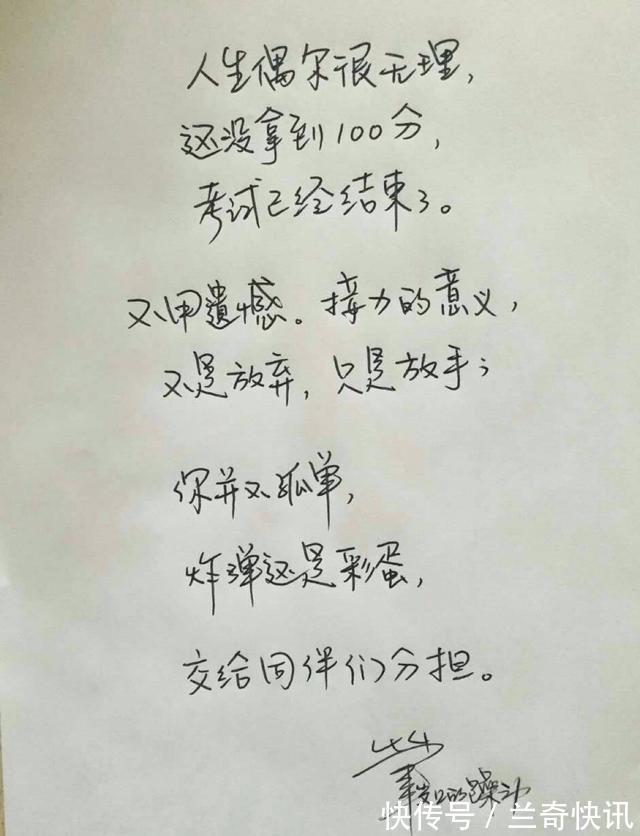 人生偶尔很无理,
还没拿到100分,
考试已经结束了。
不用遗憾。接力的意义,
不是放弃, 只是放手;
你并不孤单,
炸弹还是彩蛋,
交给同伴们分担。
快传号 / 兰奇快讯